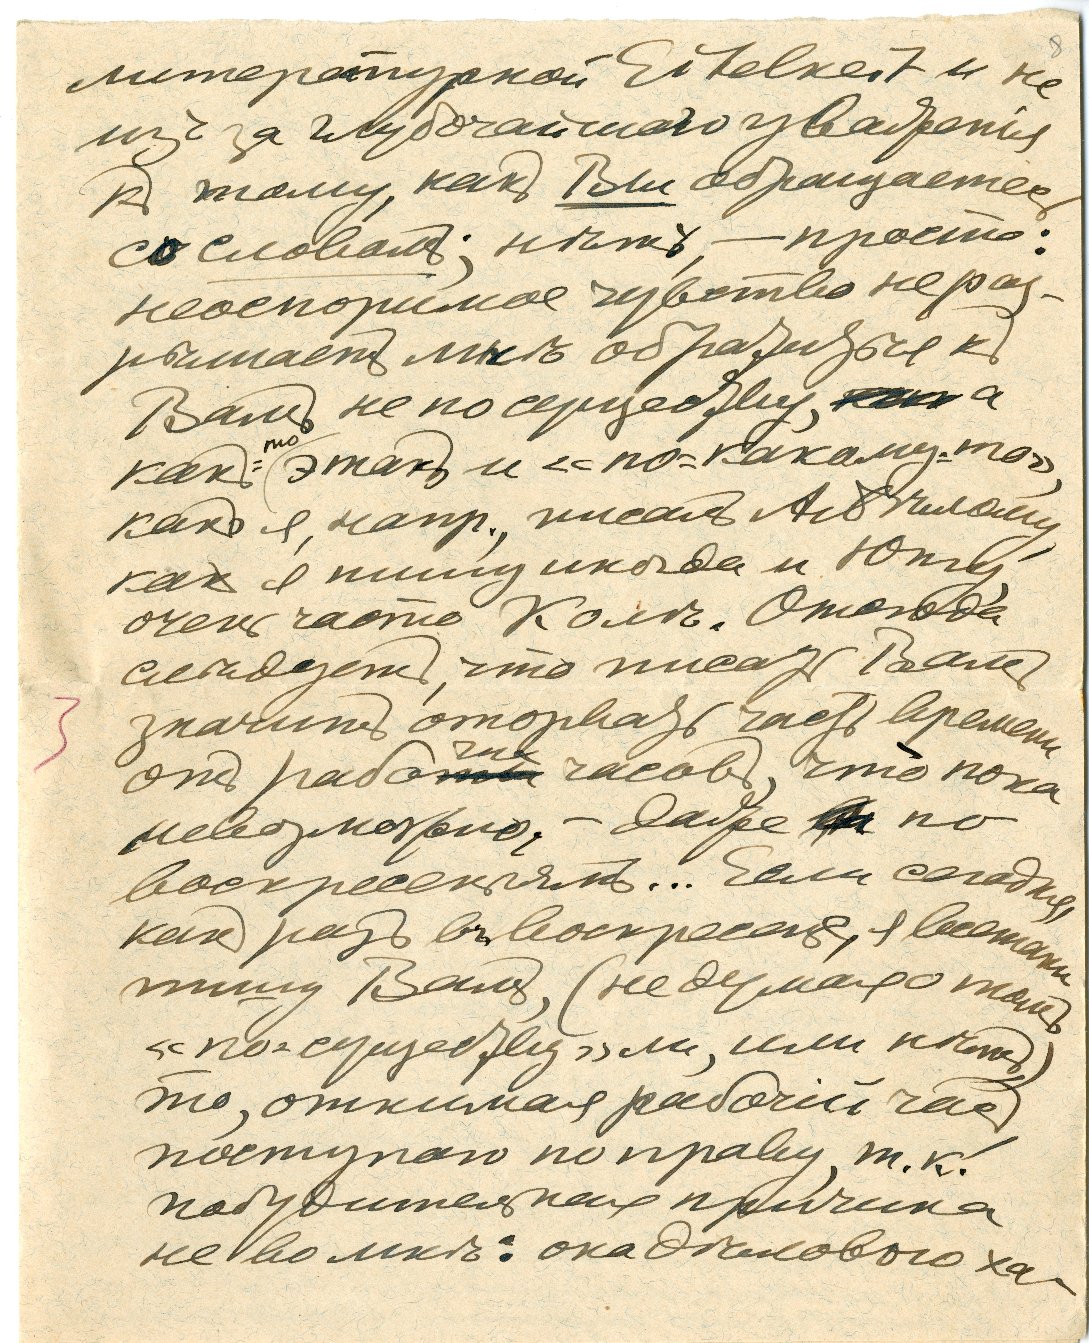 8
литературной Eitelkeit и не
изъ за глубочайшаго уваженія
къ тому, какъ Вы обращаетесь
со словомъ; нѣтъ, — просто:
неоспоримое чувство не раз-
рѣшаетъ мнѣ обращаться къ
Вамъ не по существу, а
какъ=то этакъ и «по=какому=то»,
какъ я, напр., писалъ
какъ я пишу иногда и Югу,
очень часто Колѣ. Отсюда
слѣдуетъ, что писать Вамъ
значитъ оторвать часть времени
отъ рабочихъ часовъ, что пока
невозможно, — даже по
воскресеньямъ... Если сегодня,
какъ разъ въ воскресенье, я всетаки
пишу Вамъ, (не думая о томъ
«по=существу» ли, или нѣтъ)
то, отнимая рабочій часъ
поступаю по праву, т. к.
побудительная причина
не во мнѣ: она дѣлового ха-